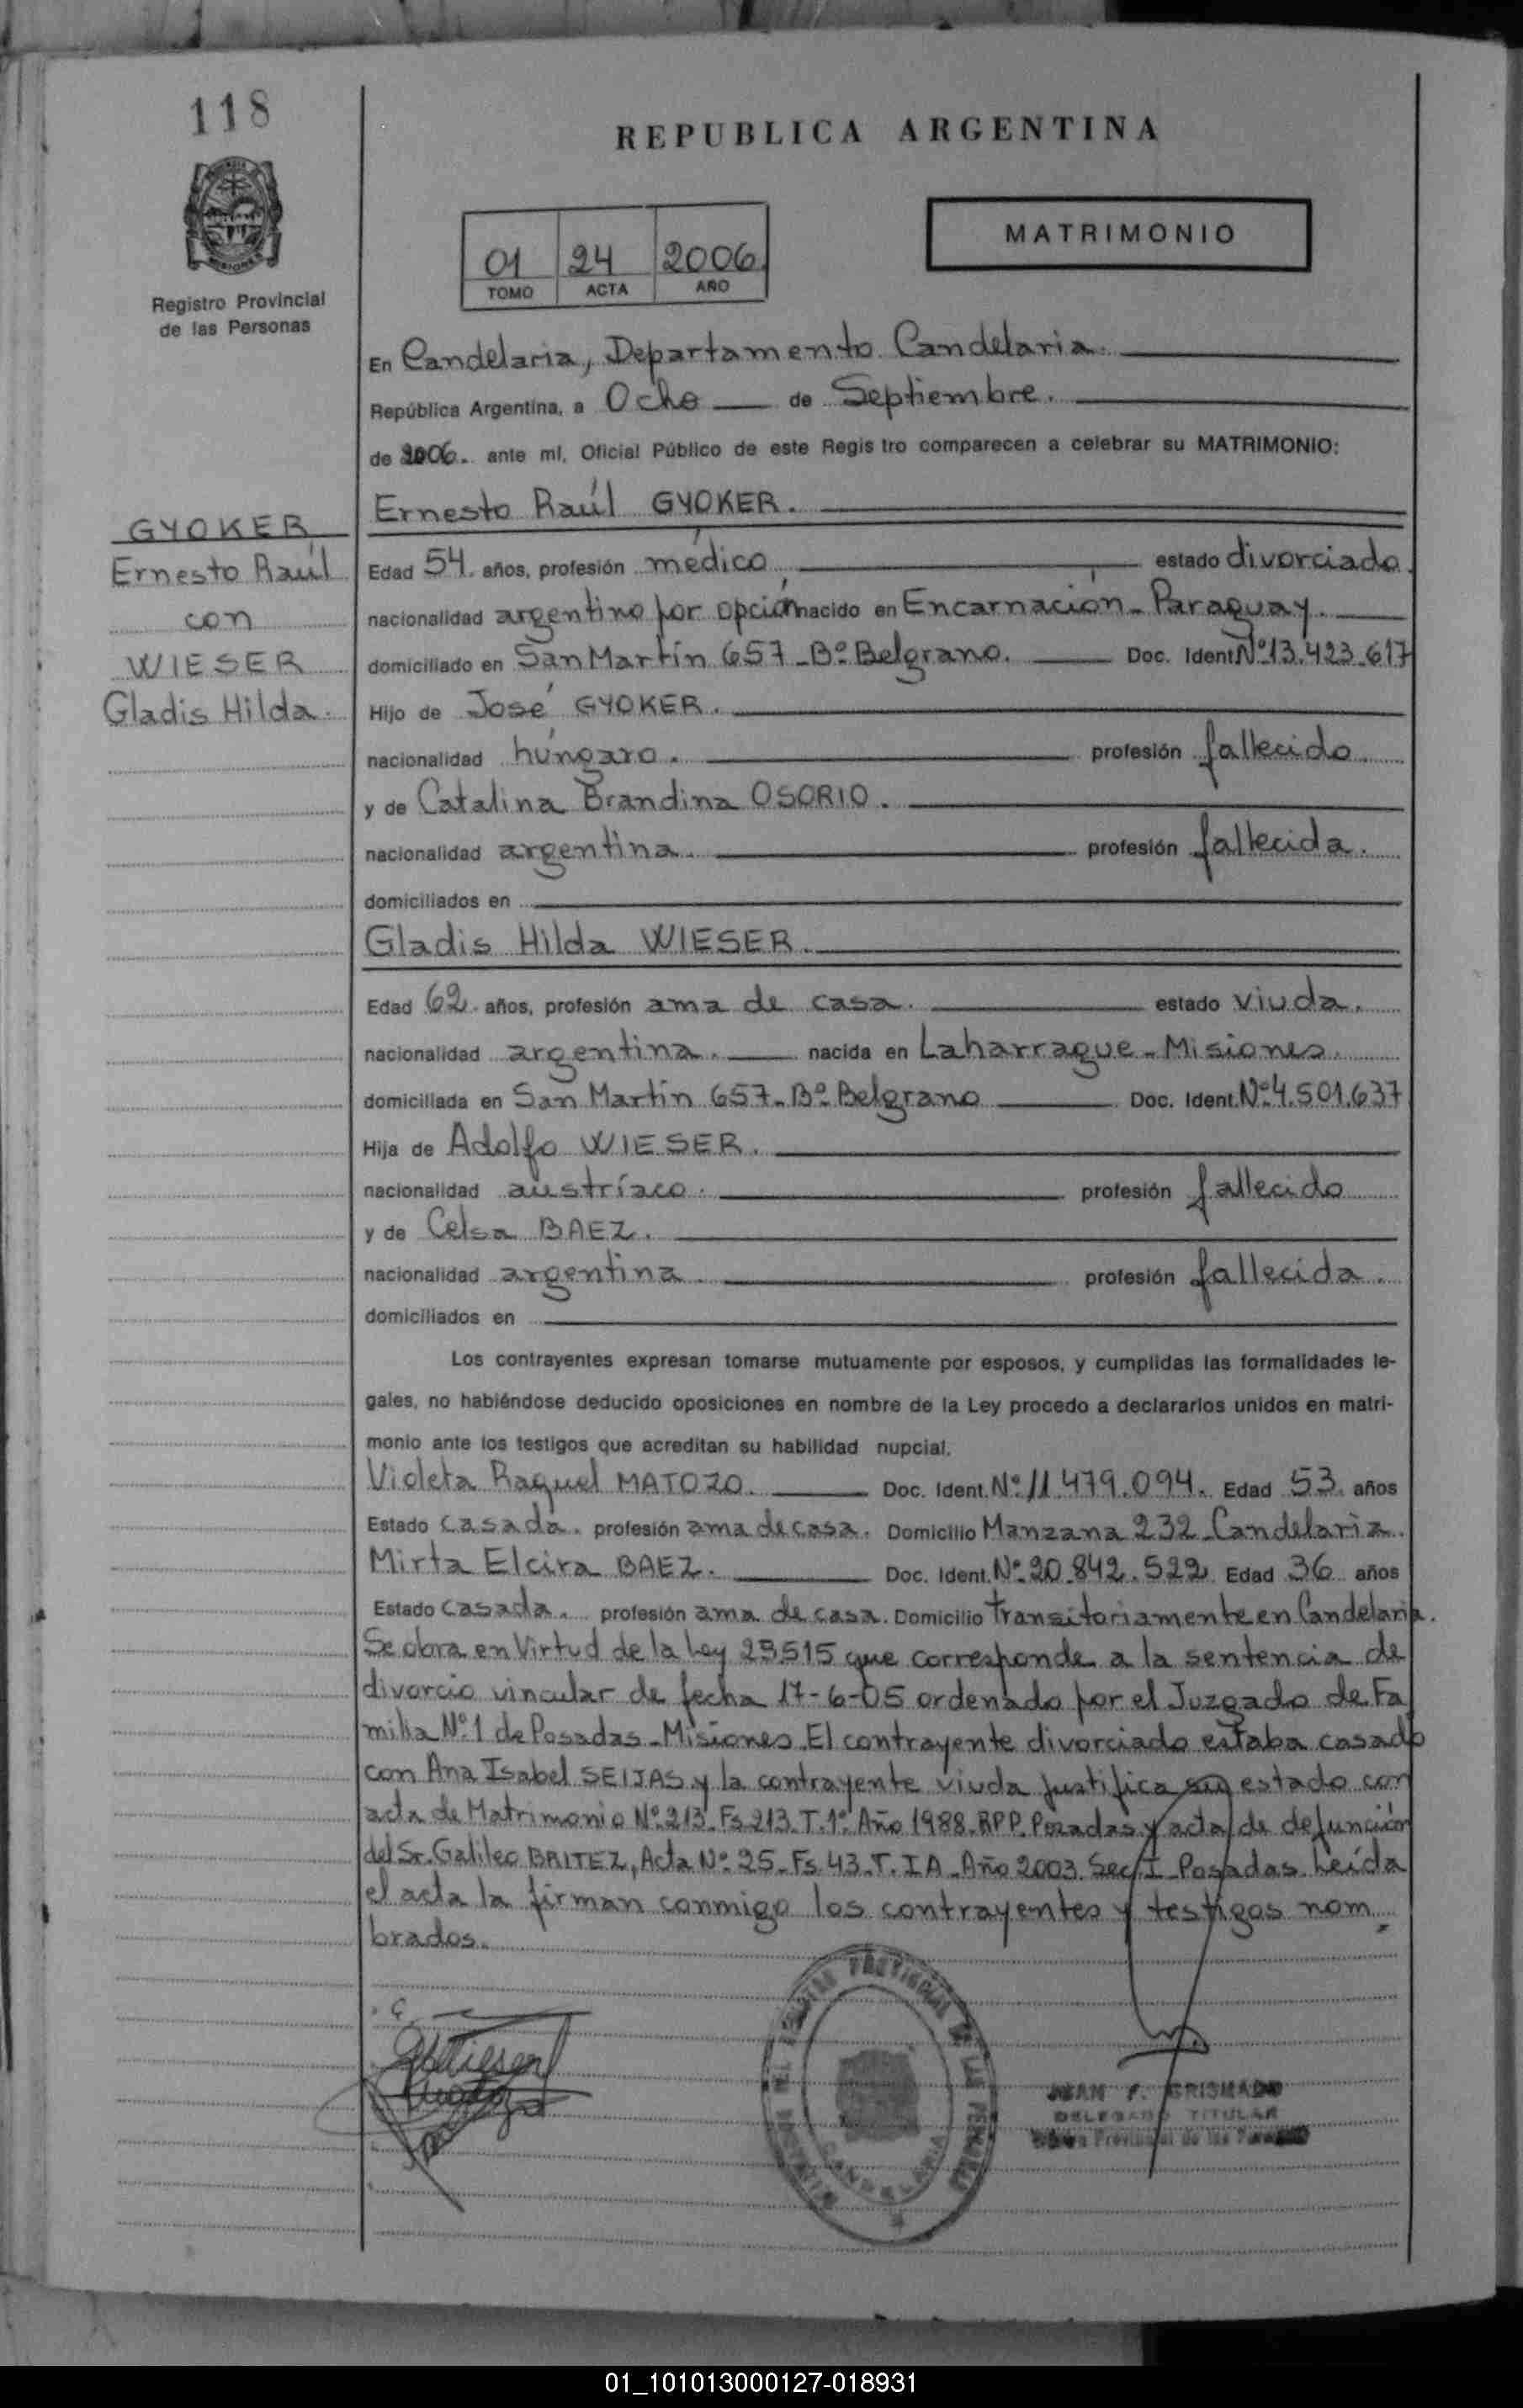 118
REPUBLICA ARGENTINA
MATRIMONIO
01 24 2006
TOMO ACTA AÑO
Registro Provincial
de las Personas
En Candelaria, Departamento Candelaria.
República Argentina, a Ocho de Septiembre.
de 2006. ante mí, Oficial Público de este Regis tro comparecen a celebrar su MATRIMONIO:
Ernesto Raúl GYOKER.
GYOKER
Ernesto Raúl
con
WIESER
Gladis Hilda.
Edad 54. años, profesión médico estado divorciado.
nacionalidad argentino por opción nacido en Encarnación - Paraguay.
domiciliado en San Martín 657 - Bº Belgrano. Doc. Ident. Nº 13.423.617
Hijo de José GYOKER.
nacionalidad húngaro. profesión fallecido
y de Catalina Brandina OSORIO.
nacionalidad argentina. profesión fallecida.
domiciliados en
Gladis Hilda WIESER.
Edad 62. años, profesión ama de casa. estado viuda.
nacionalidad argentina. nacida en Laharrague - Misiones.
domiciliada en San Martín 657 - Bº Belgrano Doc. Ident. Nº 4.501.637
Hija de Adolfo WIESER.
nacionalidad austríaco. profesión fallecido
y de Celsa BAEZ.
nacionalidad argentina. profesión fallecida.
domiciliados en
Los contrayentes expresan tomarse mutuamente por esposos, y cumplidas las formalidades le-
gales, no habiéndose deducido oposiciones en nombre de la Ley procedo a declararlos unidos en matri-
monio ante los testigos que acreditan su habilidad nupcial.
Violeta Raquel MATOZO. Doc. Ident. Nº 11.479.094. Edad 53. años
Estado casada. profesión ama de casa. Domicilio Manzana 232 - Candelaria.
Mirta Elcira BAEZ. Doc. Ident. Nº 20.842.522 Edad 36 años
Estado casada. profesión ama de casa. Domicilio transitoriamente en Candelaria.
Se obra en Virtud de la Ley 23515 que corresponde a la sentencia de
divorcio vincular de fecha 17-6-05 ordenado por el Juzgado de Fa
milia Nº 1 de Posadas - Misiones. El contrayente divorciado estaba casado
con Ana Isabel SEIJAS y la contrayente viuda justifica su estado con
acta de Matrimonio Nº 213 - Fs 213 - T. 1º Año 1988 - RPP. Posadas y acta de defunción
del Sr. Galileo BRITEZ, Acta Nº 25 - Fs 43 - T. IA - Año 2003. Sec I - Posadas. Leída
el acta la firman conmigo los contrayentes y testigos nom
brados.
CANDELARIA
JUAN F. GRISMADO
DELEGADO TITULAR
01_101013000127-018931